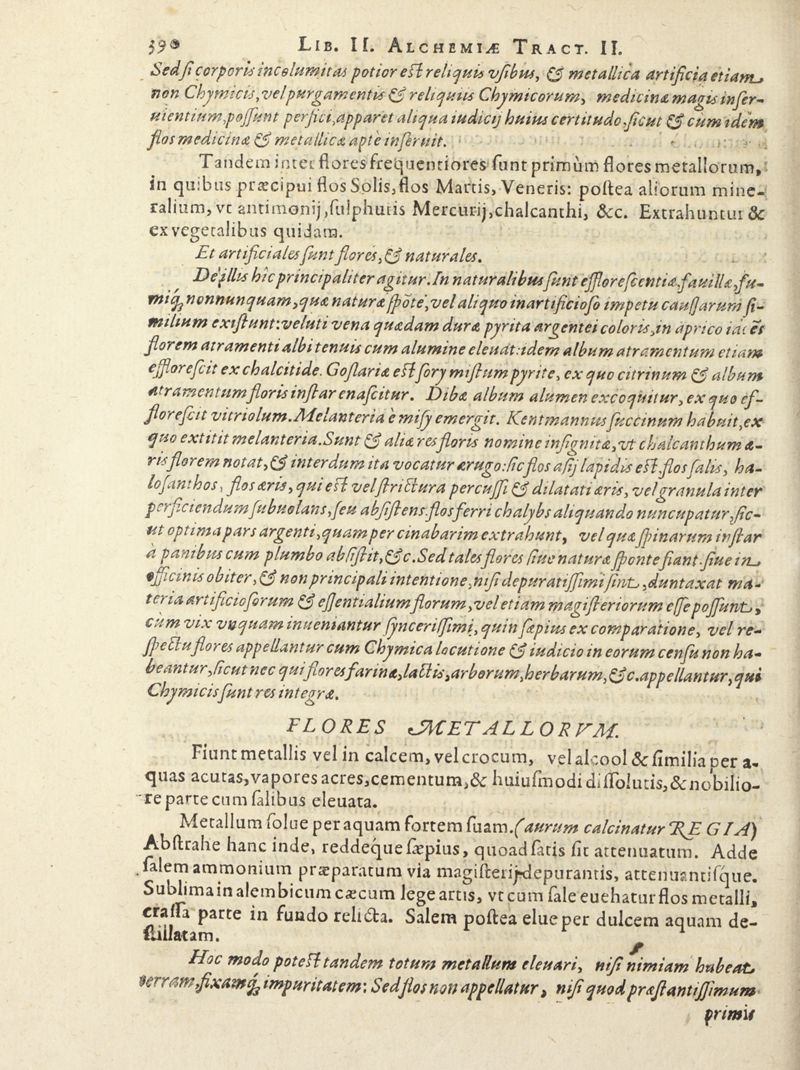 390 LIB. II. ALCHEMIÆ TRACT. II.
Sed ſi corporis incolumitas potior est reliquis vſibus, & metallica artificia etiam
non Chymicis, vel purgamentis & reliquiis Chymicorum, medicinæ magis inſer-
uientium, poſſunt perfici, apparet aliqua iudicij huius certitudo, ſicut & cum idem
flos medicinæ & metallicæ apte inſeruit.
Tandem inter flores frequentiores ſunt primùm flores metallorum,
in quibus præcipui flos Solis, flos Martis, Veneris: poſtea aliorum mine-
ralium, vt antimonij, ſulphuris Mercurij, chalcanthi, &c. Extrahuntur &
ex vegetalibus quidam.
Et artificiales ſunt flores, & naturales.
De illis hic principaliter agitur. In naturalibus ſunt effloreſcentiæ, fauillæ, fu-
miq́; nonnunquam, quæ naturæ ſpōte, vel aliquo inartificioſo impetu cauſſarum ſi-
milium exiſtunt: veluti vena quædam dura pyritæ argentei coloris, in aprico iacēs
florem atramenti albi tenuis cum alumine eleuat: idem album atramentum etiam
effloreſcit ex chalcitide. Goſlariæ est ſory miſtum pyrite, ex quo citrinum & album
atramentum floris inſtar enaſcitur. Dibæ album alumen excoquitur, ex quo ef-
floreſcit vitriolum. Melanteria è miſy emergit. Kentmannus ſuccinum habuit, ex
quo extitit melanteria. Sunt & aliæ res floris nomine inſignitæ, vt chalcanthum æ-
ris florem notat, & interdum ita vocatur ærugo: ſic flos aſij lapidis est, flos ſalis, ha-
loſanthos, flos æris, qui est vel ſtrictura percuſſi & dilatati æris, vel granula inter
perficiendum ſubuolans, ſeu abſiſtens: flos ferri chalybs aliquando nuncupatur, ſic-
ut optima pars argenti, quam per cinabarim extrahunt, vel quæ ſpinarum inſtar
à panibus cum plumbo abſiſtit, &c. Sed tales flores ſiue naturæ ſponte fiant, ſiue in
officinis obiter, & non principali intentione, niſi depuratiſſimi ſint, duntaxat ma-
teria artificioſorum & eſſentialium florum, vel etiam magiſteriorum eſſe poſſunt,
cum vix vnquam inueniantur ſynceriſſimi, quin ſæpius ex comparatione, vel re-
ſpectu flores appellantur cum Chymica locutione & iudicio in eorum cenſu non ha-
beantur, ſicut nec qui flores farinæ, lactis, arborum, herbarum, &c. appellantur, qui
Chymicis ſunt res integræ.
FLORES METALLORVM.
Fiunt metallis vel in calcem, vel crocum, vel alcool & ſimilia per a-
quas acutas, vapores acres, cementum, & huiuſmodi diſſolutis, & nobilio-
re parte cum ſalibus eleuata.
Metallum ſolue per aquam fortem ſuam. (aurum calcinatur REGIA)
Abſtrahe hanc inde, reddeque ſæpius, quoad ſatis ſit attenuatum. Adde
ſalem ammonium præparatum via magiſterij depurantis, attenuantiſque.
Sublima in alembicum cæcum lege artis, vt cum ſale euehatur flos metalli,
craſſa parte in fundo relicta. Salem poſtea elue per dulcem aquam de-
ſtillatam.
Hoc modo potest tandem totum metallum eleuari, niſi nimiam habeat
terram, fixamq́; impuritatem: Sed flos non appellatur, niſi quod præſtantiſſimum
primis